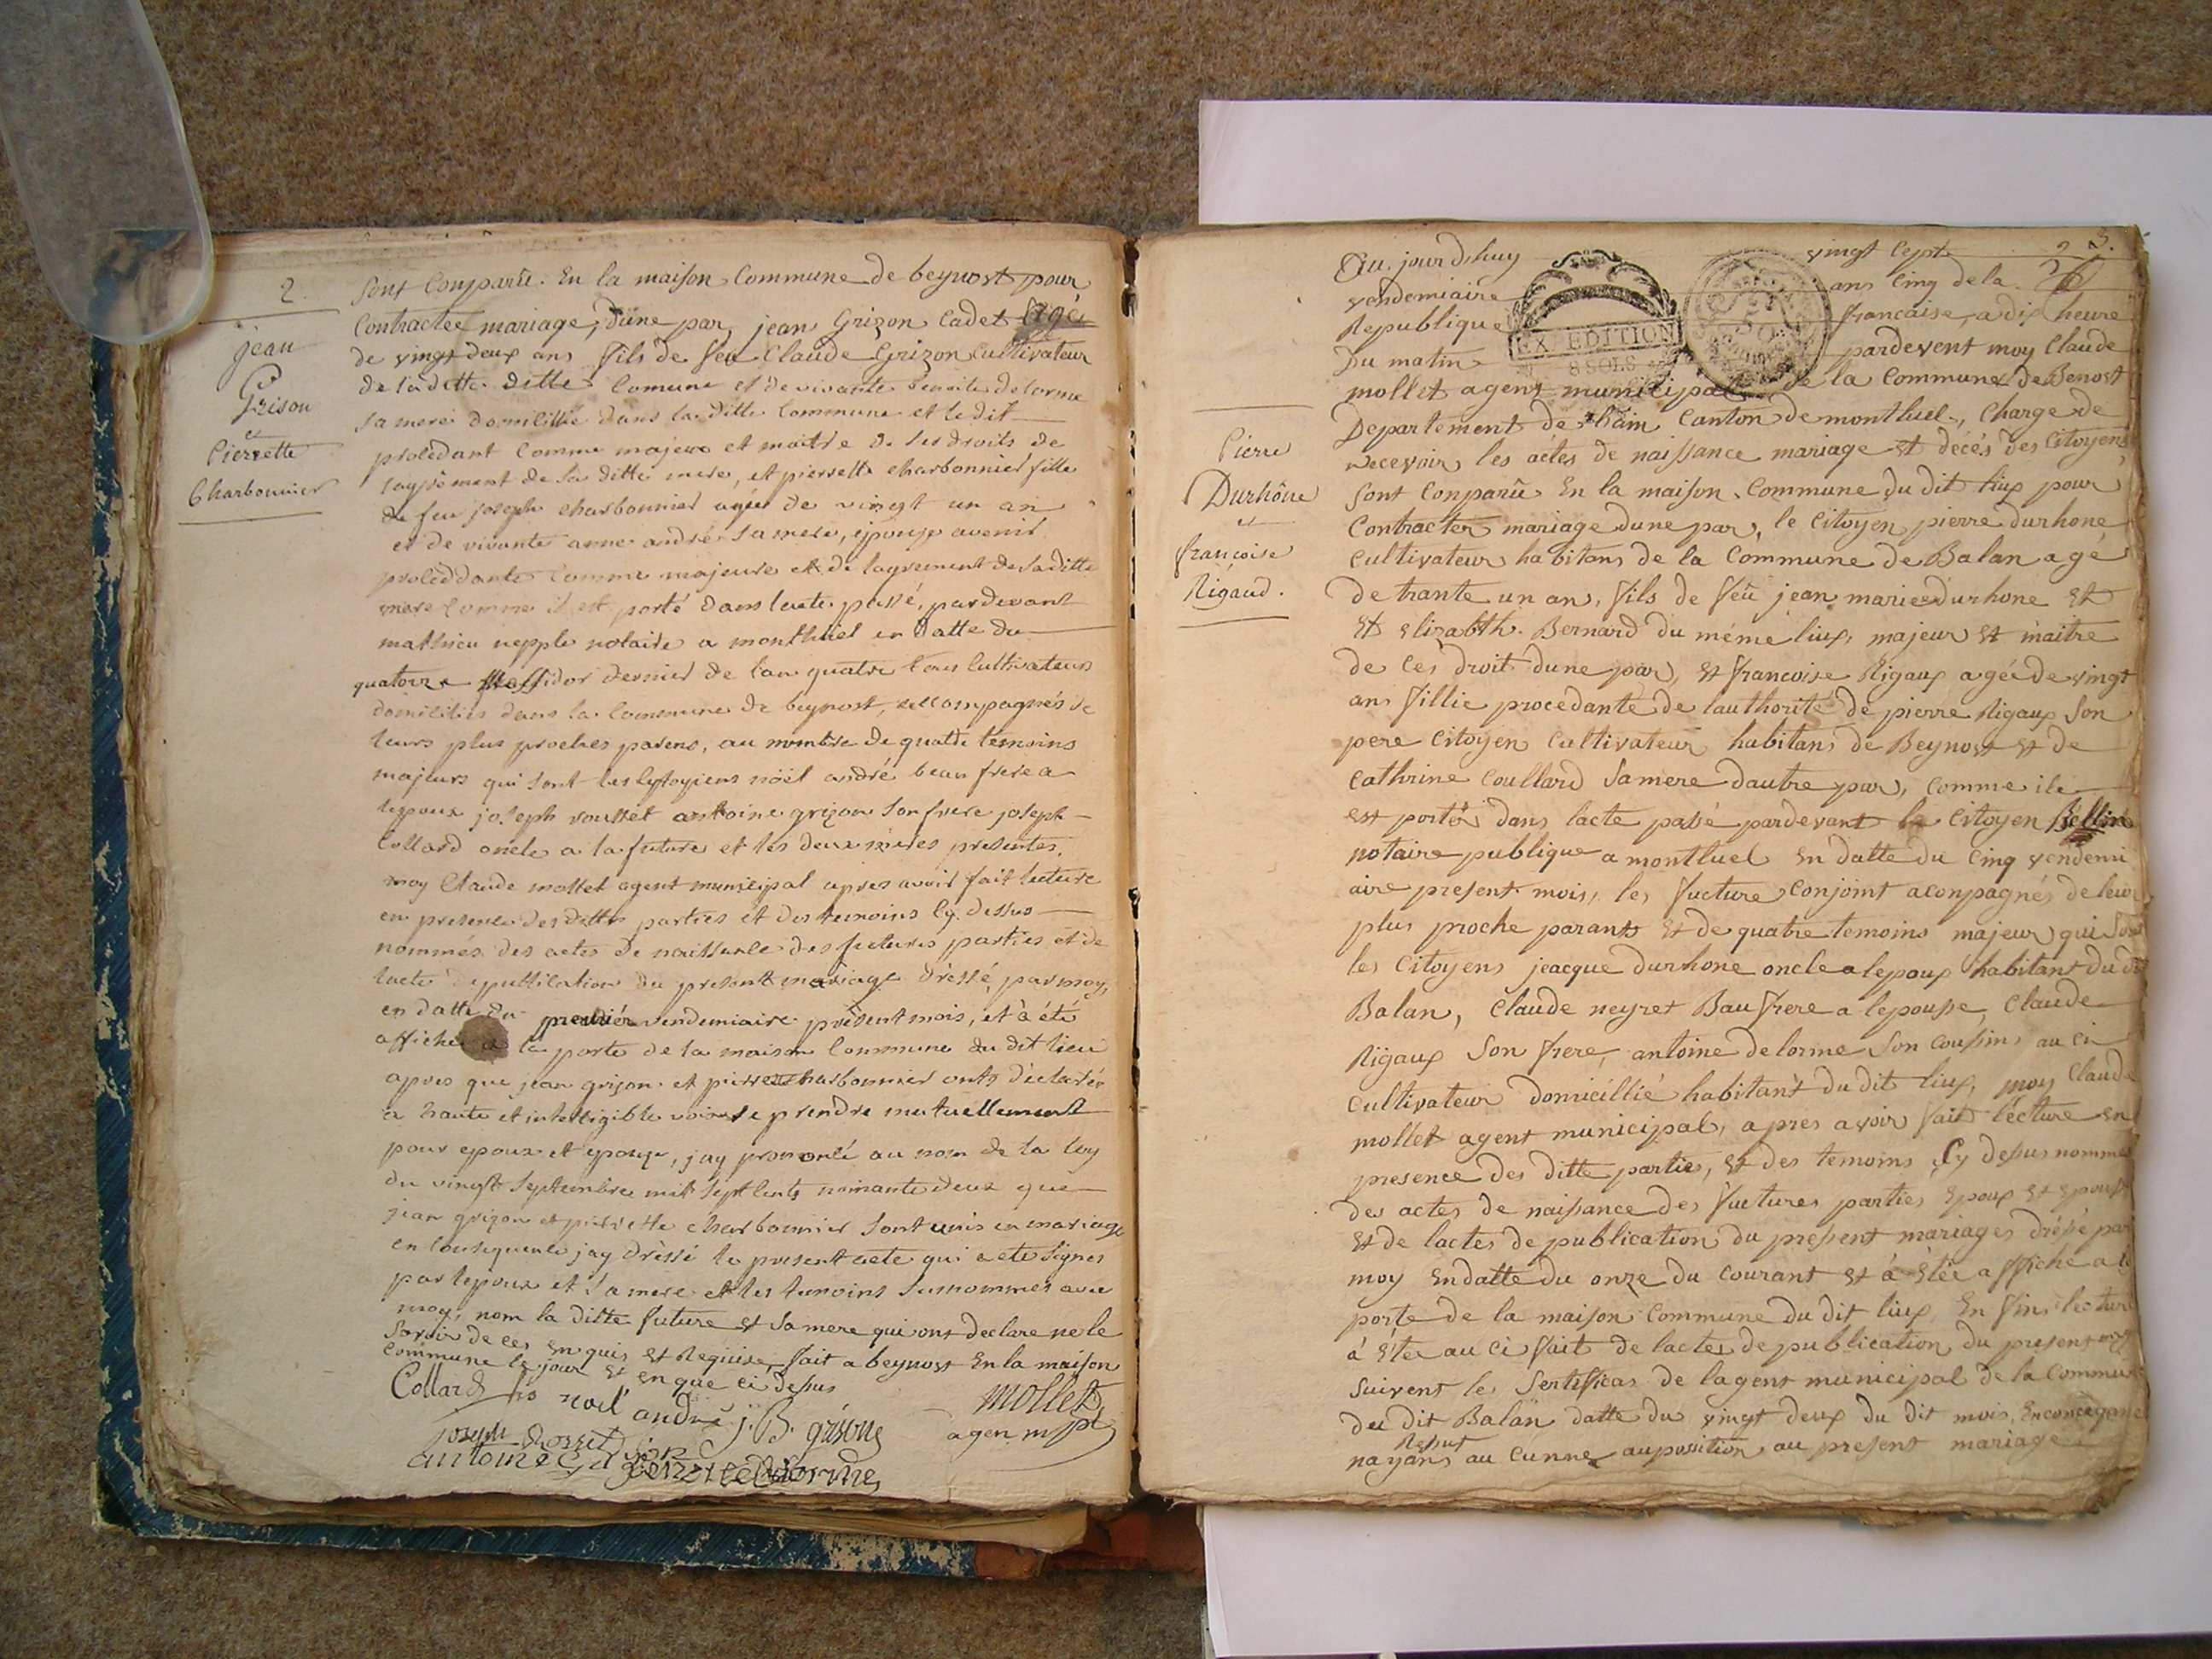 2
jean
Grison
et
Pierrette
Charbonnier
sont Comparû. En la maison Commune de beynost pour
Contractee mariage, dûne par, jean Grizon Cadet agé
de vingt deux ans fils de feu Claude Grizon Cultivateur
de la ditte ditte Comune et de vivante benoite delorme
sa mere domiliée dans la ditte Commune et le dit
procédant Comme majeur et maitre de ses droits de
layrément de sa ditte mere, et pierrette charbonnier fille
de feu joseph charbonnier agée de vingt un an
et de vivante anne andré sa mere, épouse avenir
procéddante Comme majeure et de lagrement de sa ditte
mere Comme il est porté dans lacte passé, pardevant
mathieu nepple notaire a montluel en datte du
quatorze Messidor dernier de lan quatre tous Cultivateurs
domiciliés dans la Commune de beynost, accompagnés de
leurs plus proches parens, au nombre de quatre temoins
majeurs qui sont les cytoyiens nöel andré beau frere a
lepoux joseph rousset antoine grizon son frere joseph
Collard oncle a la future et les deux mères presentes,
moy Claude mollet agent municipal apres avoir fait lecture
en presence des dittes parties et des temoins Cy. dessus
nommés des actes de naissance des futures parties et de
lacte de publication du present mariage dréssé, par moy,
en datte du premier vendemiaire présent mois, et à été
affiché a la porte de la maison Commune du dit lieu
apres que jean grizon et pierrette charbonnier onts déclarér
a haute et intelligible voix se prendre mutuellement
pour epoux et epouse, jay prononcé au nom de la loy
du vingt Septembre mil sept Cents nonante deux que
jean grizon et pierrette charbonnier sont unis en mariage
en Consequence jay dréssé le present acte qui a eté signes
par lepoux et sa mere et les temoins susnommés avec
moy, nom la ditte future et sa mere qui ont declare ne le
savoir de ces enquis et Requise, fait a beynost En la maison
Commune le jour et en que ci desus
Collard noël andré j. B. grison mollet
joseph Rosset agen mpl
antoine Grison
benoite delorme
3.
Au, jourdhuy vingt sept
vendemiaire ans Cinq de la
Republique francaise, a dix heure
Du matin pardevent moy Claude
EXPEDITION
8 SOLS
mollet agent municipal de la Commune de Benost
Departement de Lain Canton de montluel, Charge de
Recevoir les actes de naissance mariage et decés des Citoyens
Pierre
Durhône
et
françoise
Rigaud.
sont Conparû En la maison Commune du dit liux pour
Contracter mariage dune par, le Citoyen pierre durhone
Cultivateur habitans de la Commune de Balan agé
de trante un an, fils de feû jean marie durhone et
et elizabth. Bernard du méme liux, majeur et maitre
de ces droit dune par, et francoise Rigaux agée de vingt
ans fillie procedante de lauthorité de pierre Rigaux son
pere Citoyen Cultivateur habitans de Beynost et de
Cathrine Coullard sa mere dautre par, Comme ile
est porté dans lacte passé pardevant le Citoyen Bellin
notaire publique a montluel en datte du Cinq vendemi
aire present mois, les fucture Conjoint aconpagnés de leur
plus proche parants et de quatre temoins majeur qui sont
les Citoyens jeacque durhone oncle a lepoux habitant du dit
Balan, Claude neyret Baufrere a lepouse, Claude
Rigaux son frere, antoine delorme son cousins au ci
Cultivateur domicillié habitant du dit liux, moy Claude
mollet agent municipal, apres avoir fait lécture en
presence des ditte partie, et des temoins Cy desus nommé
des actes de naissance des fuctures parties epoux et epouse
et de lactes de publication du present mariages dréssé par
moy Endatte du onze du Courant et à étée affiche a la
porte de la maison Commune du dit liux En fins lecture
à étée au ci fait de lactes de publication du present
suivent le Sertificas de lagent municipal de la Commune
du dit Balan datte du vingt deux du dit mois,
nayans Resut au Cunne aupossition au present mariage